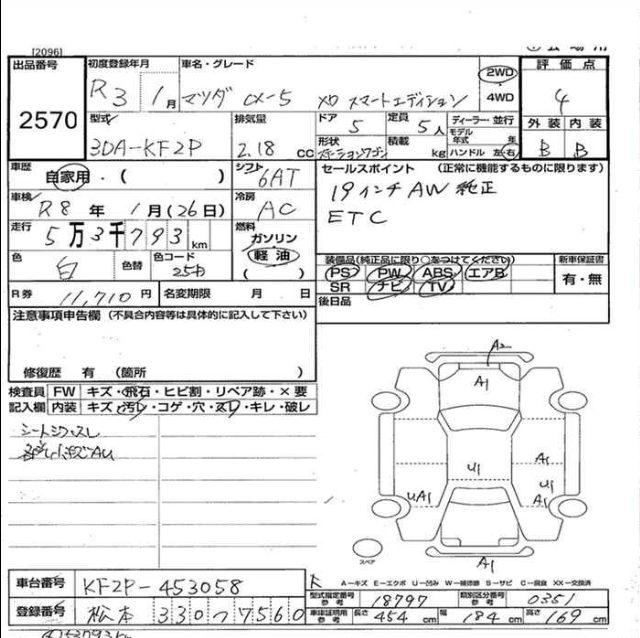 [2096]
出品番号
2570
初度登録年月
R3年 1月
車名・グレード
マツダ CX-5 XD スマートエディション
2WD
4WD
評価点
4
型式
3DA-KF2P
排気量
2.18 CC
ドア
5
定員
5人
形状
ステーションワゴン
積載
kg
ディーラー・並行
モデル年式 年
ハンドル 左・右
外装 内装
B B
車歴
自家用・( )
シフト
6AT
セールスポイント (正常に機能するものに限ります)
19インチAW 純正
ETC
車検
R8年 1月(26日)
冷房
AC
走行
5万3千793km
燃料
ガソリン
軽油
( )
色
白
色替
色コード
25D
装備品(純正品に限り○をつけてください)
PS PW ABS エアB
SR ナビ TV
新車保証書
有・無
後日品
R券 11,710円
名変期限 月 日
注意事項申告欄 (不具合内容等は具体的に記入して下さい)
修復歴 有 (箇所 )
検査員記入欄
FW キズ・飛石・ヒビ割・リペア跡・×要
内装 キズ・汚レ・コゲ・穴・スレ・キレ・破レ
A2
A1
U1
A1
U1
A1
UA1
A1
スペア
A－キズ E－エクボ U－凹み W－補修跡 S－サビ C－腐食 XX－交換済
車台番号
KF2P-453058
型式指定番号 参考
18797
類別区分番号 参考
0351
登録番号
松本 330 つ 7560
車庫証明用 参考
長さ 454cm 幅 184cm 高さ 169cm